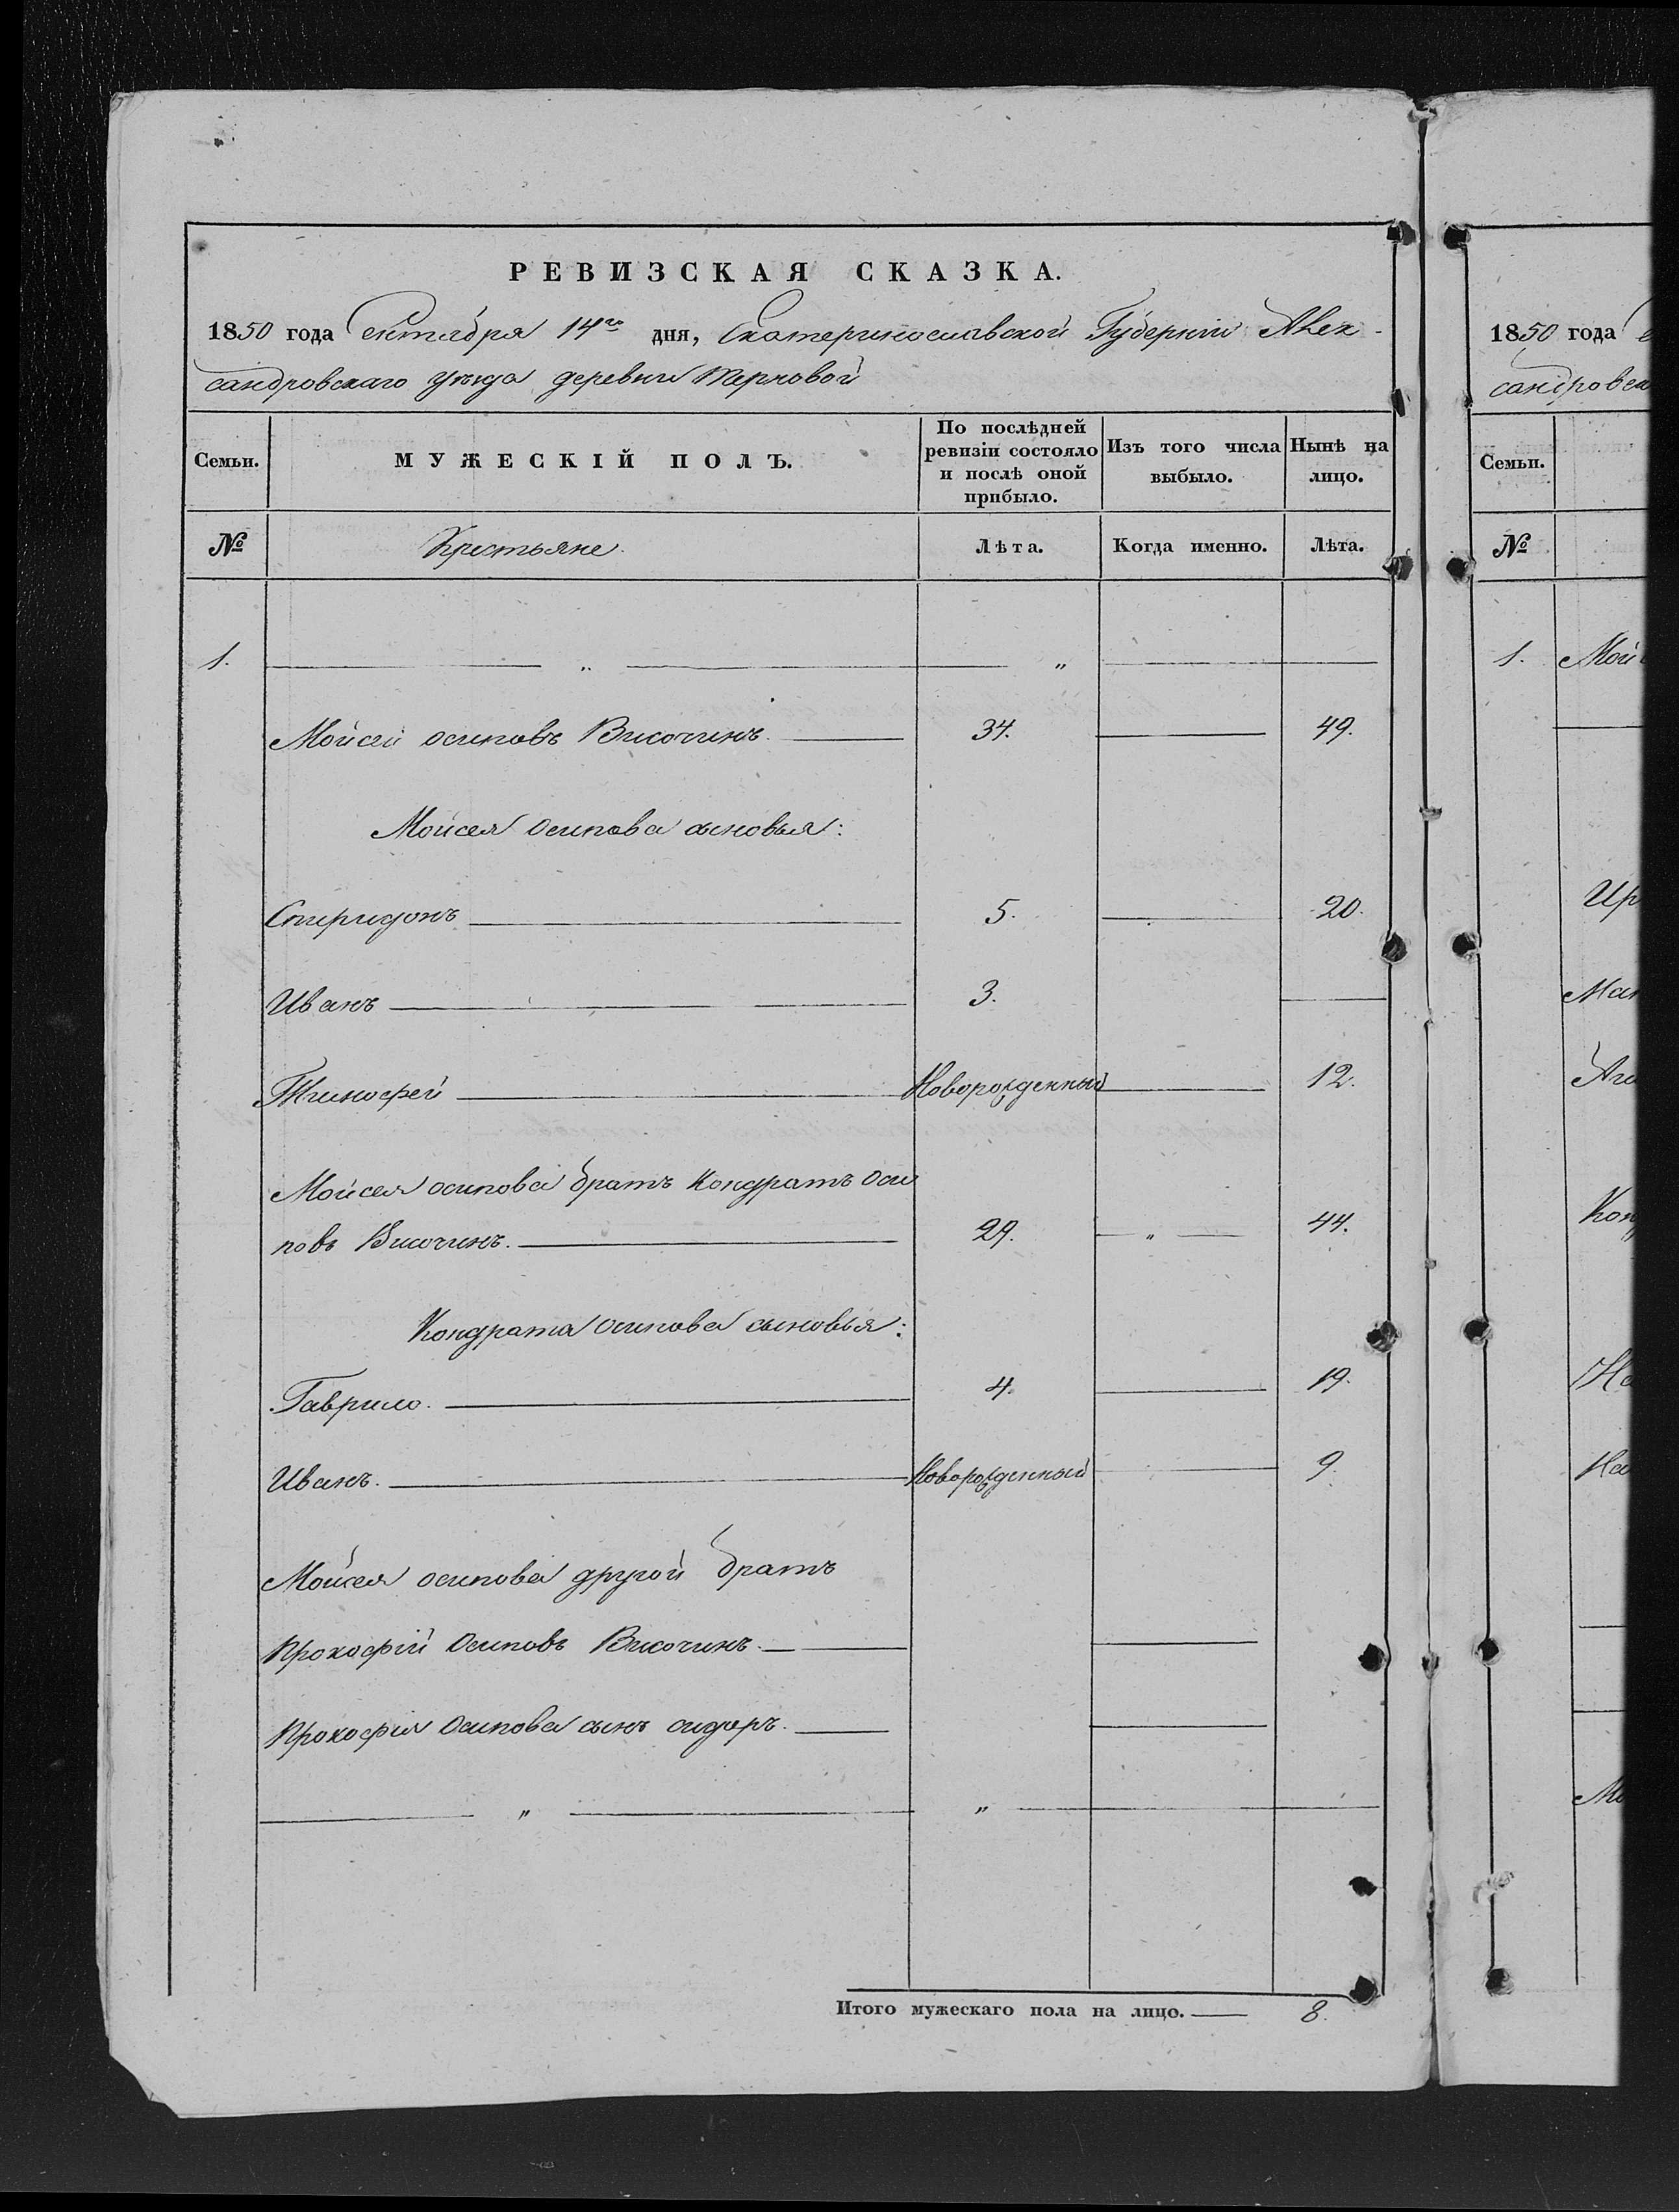 РЕВИЗСКАЯ СКАЗКА.
1850 года Сентября 14го дня, Екатеринославской Губерніи Алек-
сандровскаго уѣзда деревни Терновой
Семьи.
МУЖЕСКІЙ ПОЛЪ.
По послѣдней ревизіи состояло и послѣ оной прибыло.
Изъ того числа выбыло.
Нынѣ на лицо.
№ Крестьяне. Лѣта. Когда именно. Лѣта.
1. — „ — „ —
Мойсей осиповъ Височинъ. — 34. — 49.
Мойсея Осипова сыновья:
Спиридонъ — 5. — 20.
Иванъ — 3. —
Тимофей — Новорожденный — 12.
Мойсея осипова братъ Кондратъ Оси
повъ Височинъ. — 29. — „ — 44.
Кондрата Осипова сыновья:
Гаврило. — 4. — 19.
Иванъ. — Новорожденный — 9.
Мойсея осипова другой братъ
Прокофій Осиповъ Височинъ. — —
Прокофія Осипова сынъ сидоръ. — —
— „ — „ —
Итого мужескаго пола на лицо. — 8.
1850 года С
сандровск
Семьи.
№
1. Мой
Ир
Ма
Ага
Кон
На